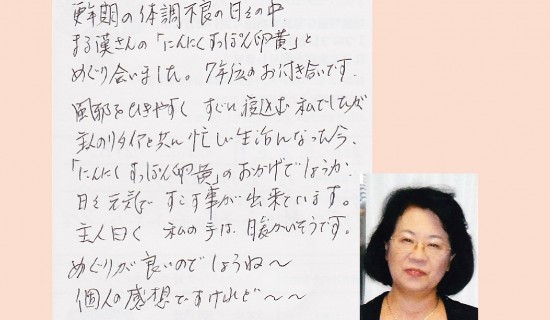 更年期の体調不良の日々の中
まる漢さんの「にんにくすっぽん卵黄」と
めぐり会いました。7年位のお付き合いです。
風邪をひきやすく すぐに寝込む私でしたが
主人のリタイアと共に忙しい生活になった今、
「にんにくすっぽん卵黄」のおかげでしょうか
日々元気で すごす事が出来ています。
主人曰く 私の手は、暖かいそうです。
めぐりが良いのでしょうね〜
個人の感想ですけれど〜〜